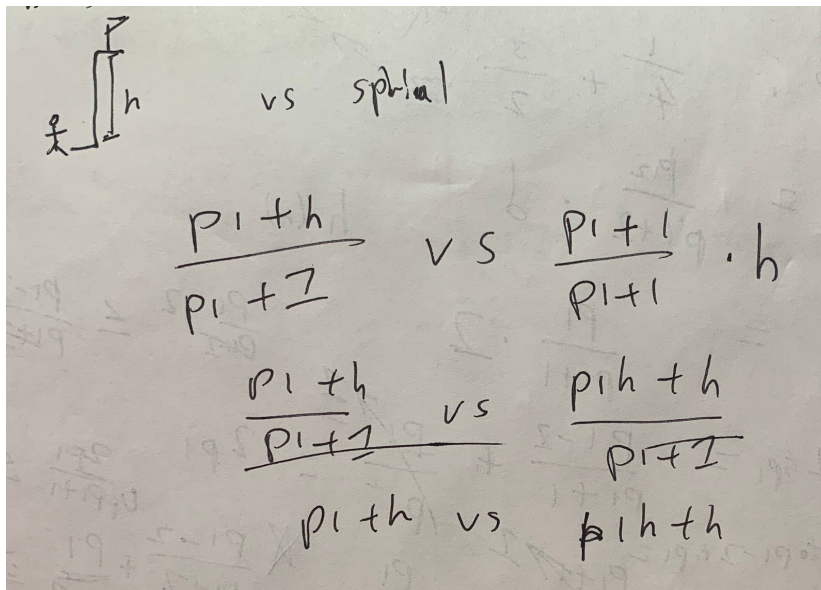 h
vs sphial
p1 + h / p1 + 1 vs p1 + 1 / p1 + 1 · h
p1 + h / p1 + 1 vs p1h + h / p1 + 1
p1 + h vs p1h + h